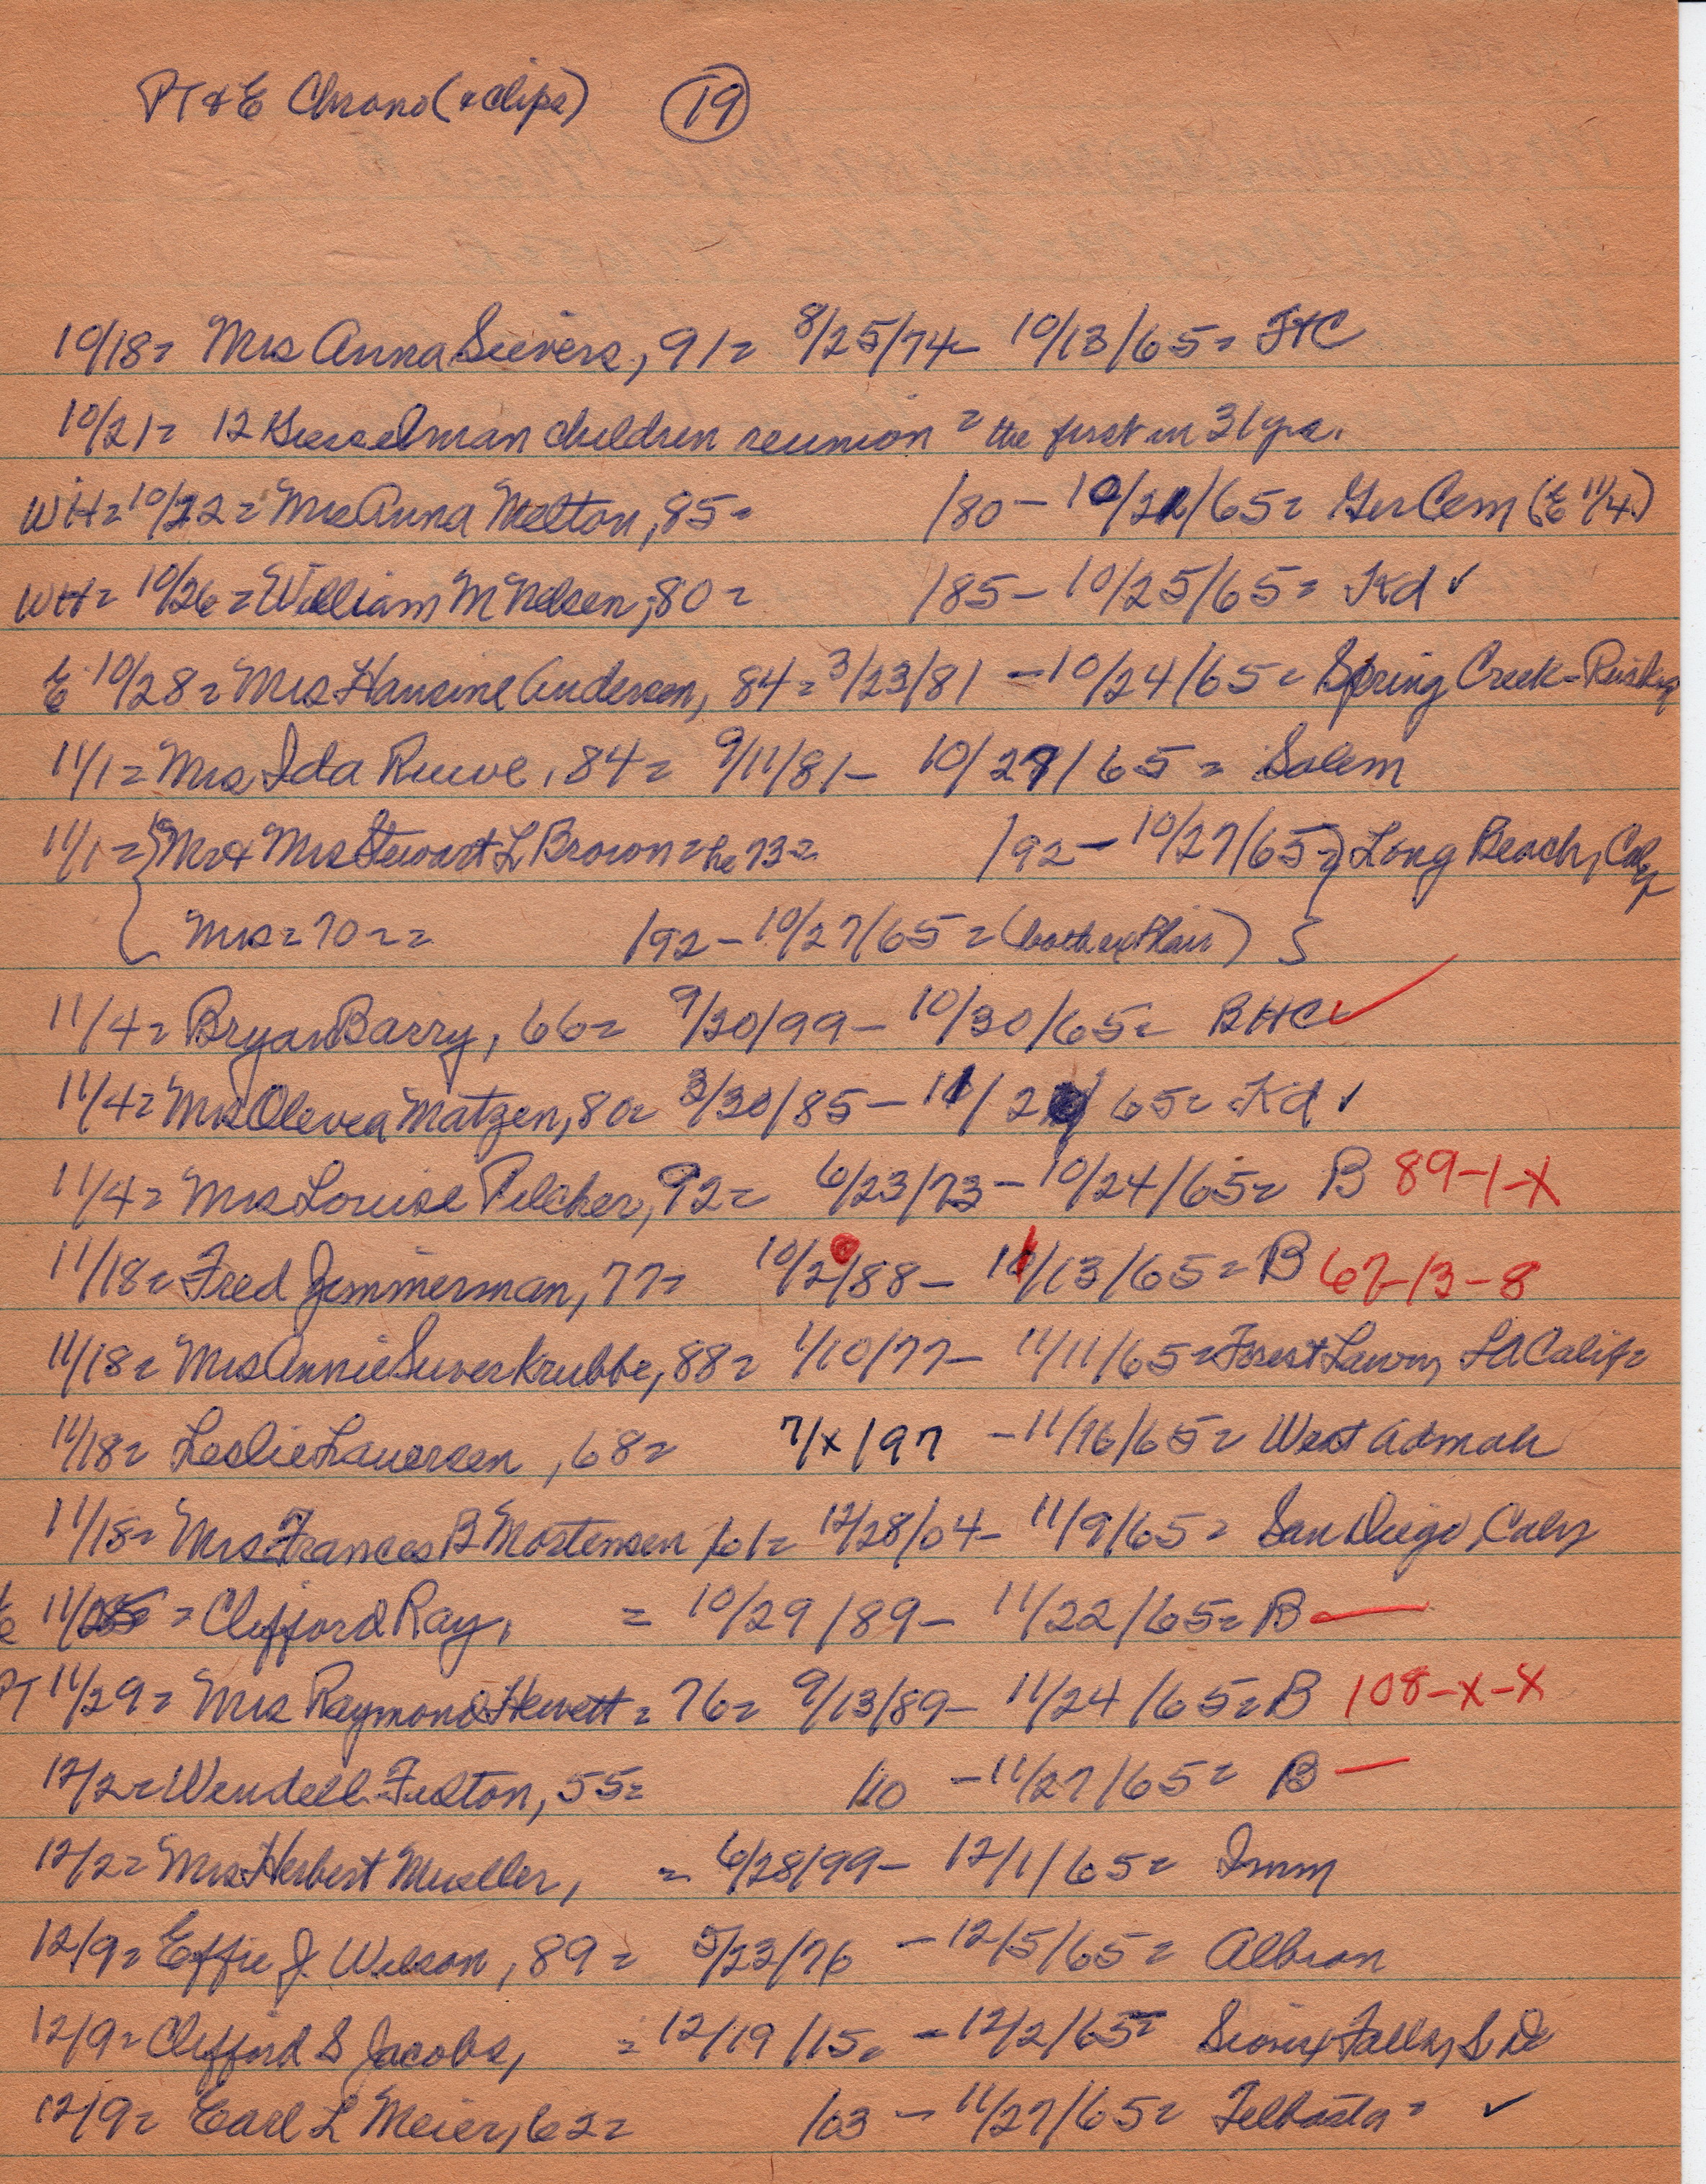 PT & E Chrono (& clips) 19
10/18= Mrs Anna Sievers, 91= 8/25/74- 10/13/65= FtC
10/21= 12 children reunion = the first in 31 yrs.
WH= 10/22= Mrs Anna Melton, 85= /80- 10/21/65= Ger Cem (E 11/4)
WH= 10/26= William M Nelsen, 80= /85- 10/25/65= Kd ✓
E 10/28= Mrs Hansine Andersen, 84= 3/23/81 -10/24/65= Spring Creek-
11/1= Mrs Ida Ruwe, 84= 9/11/81- 10/29/65= Salem
11/1= { Mr & Mrs Stewart L Brown= he 73= /92- 10/27/65= } Long Beach, Calif
{ Mrs= 70= = /92- 10/27/65= (both ex Blair) }
11/4= Bryan Barry, 66= 9/20/99- 10/30/65= BHC ✓
11/4= Mrs Olevea Matzen, 80= 3/30/85- 11/2/65= Kd ✓
11/4= Mrs Louise Pilcher, 92= 6/23/73- 10/24/65= B 89-1-X
11/18= Fred Zimmerman, 77= 10/2/88- 11/13/65= B 67-13-8
11/18= Mrs Annie Suverkrubbe, 88= 1/10/77- 11/11/65= Forest Lawn, LA Calif=
11/18= Leslie Lauersen, 68= 7/x/97 -11/16/65= West Admah
11/18= Mrs Frances B Mortensen, 61= 12/28/04- 11/9/65= San Diego, Calif
E 11/25= Clifford Ray, = 10/29/89- 11/22/65= B —
PT 11/29= Mrs Raymond Hewett= 76= 9/13/89- 11/24/65= B 108-X-X
12/2= Wendell Fulton, 55= /10 -11/27/65= B —
12/2= Mrs Herbert Mueller, = 6/28/99- 12/1/65= Imm
12/9= Effie J. Wilson, 89= 5/23/76 -12/5/65= Albion
12/9= Clifford S Jacobs, = 12/19/15= -12/2/65= Sioux Falls, S D
12/9= Earl L Meier, 62= /03 - 11/27/65= Telbasta= ✓